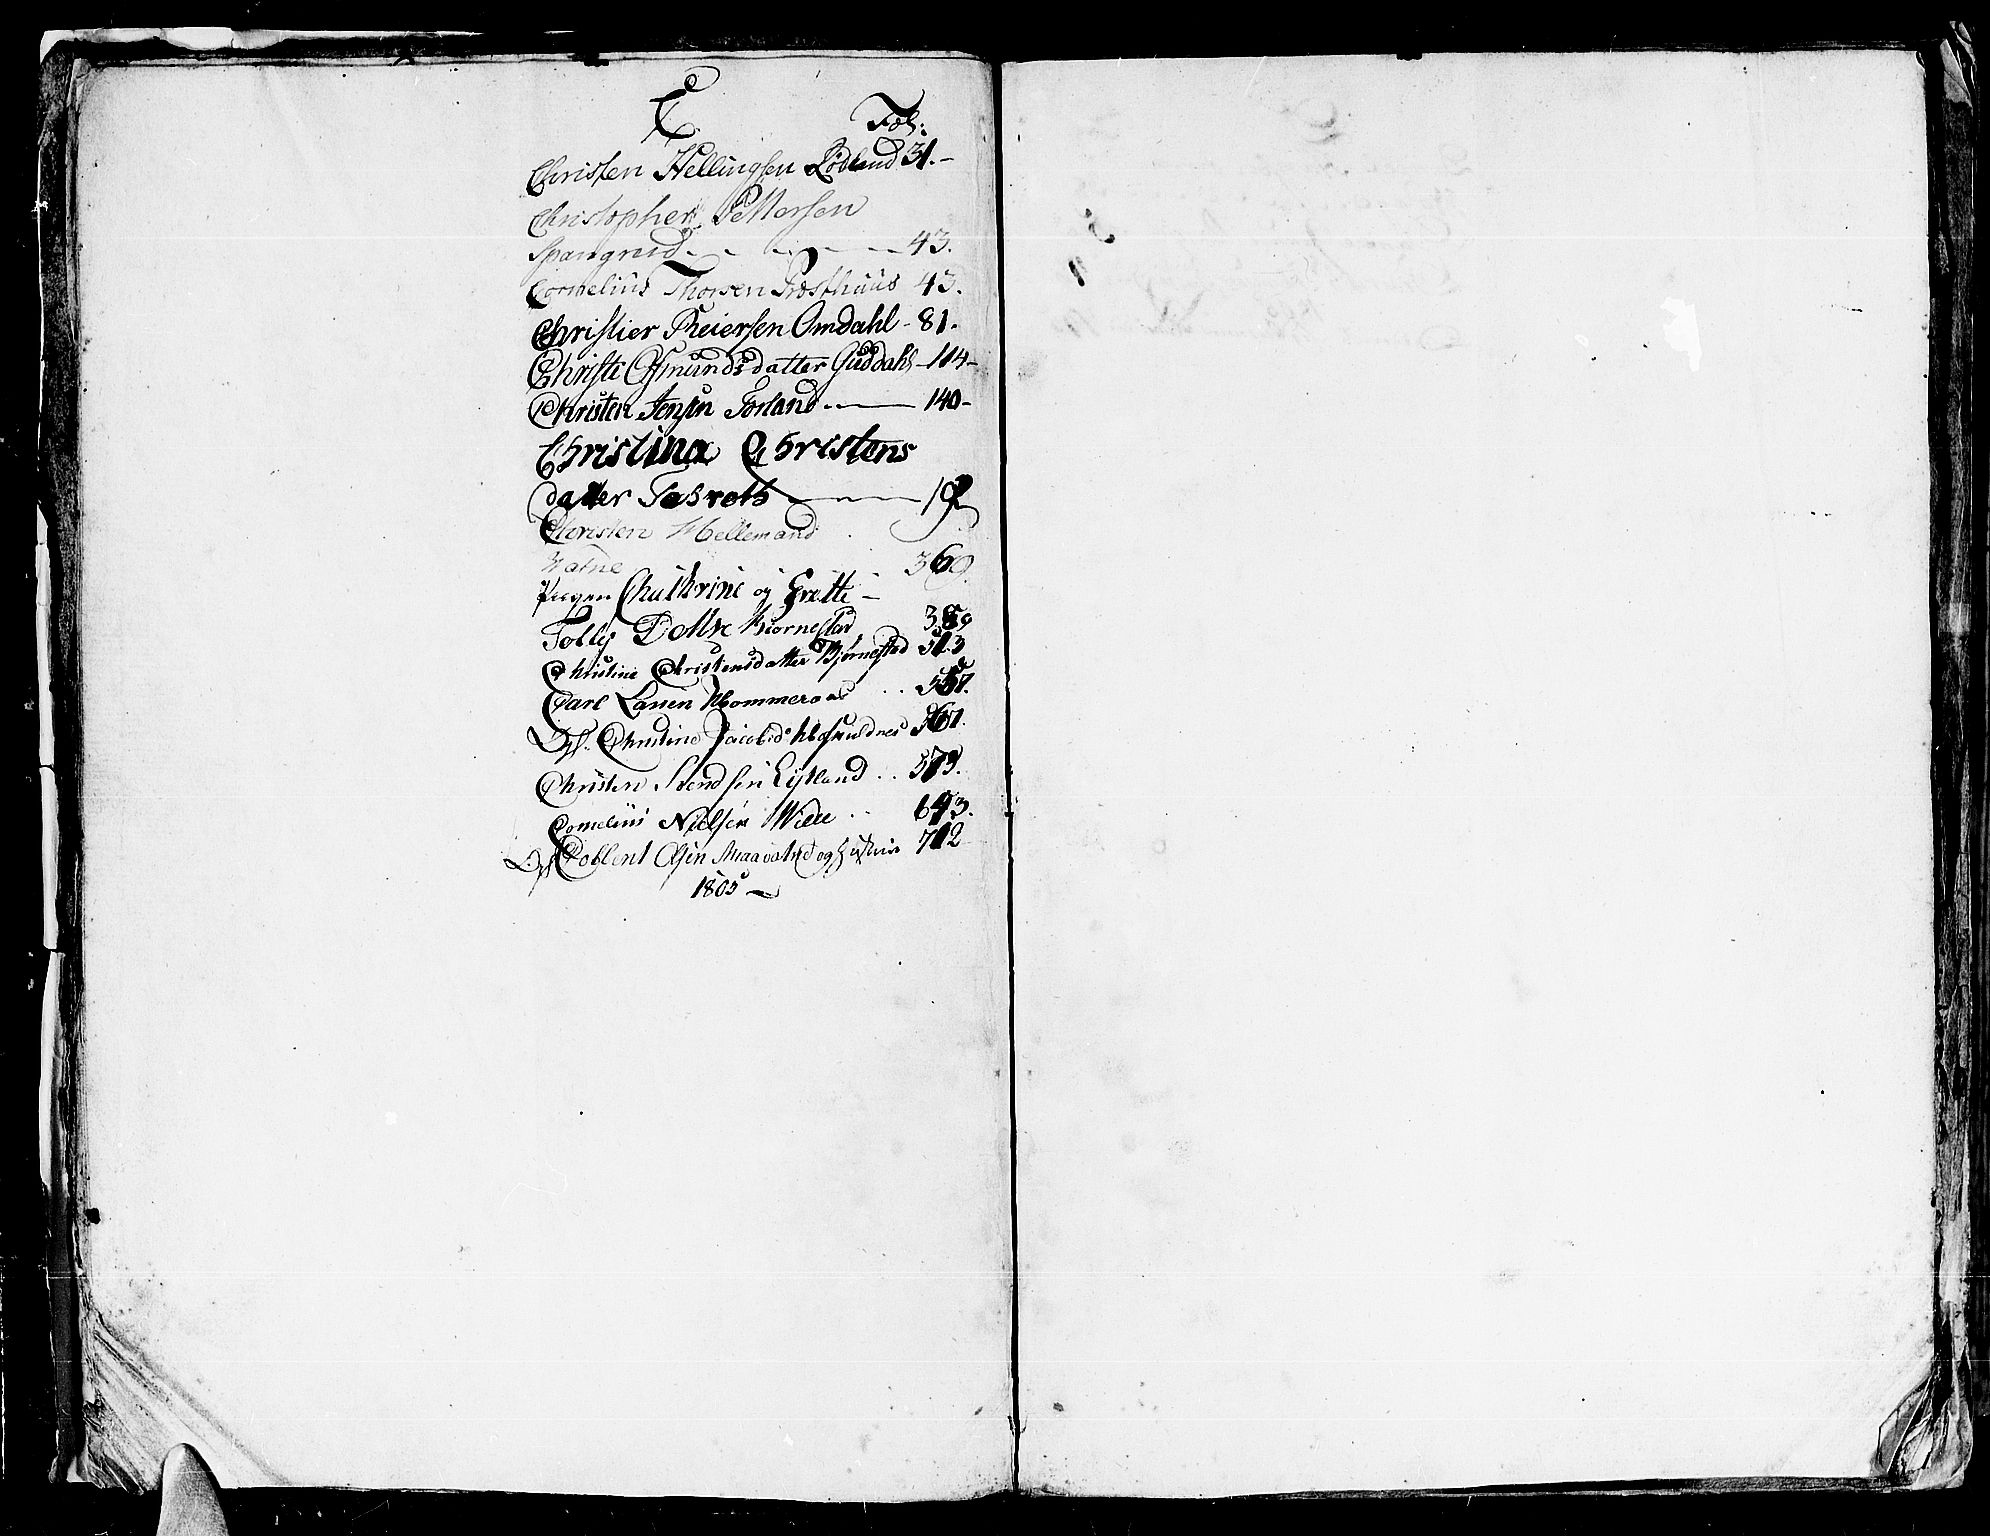 C
Fol:
Christen Hellingsen Rødland 31.-
Christopher Pettersen
Spangrud - - - - - 43.
Cornelius Thorsen Præsthuus 43.
Christier Reiersen Omdahl - 81.
Christi Osmundsdatter Guddahl - 114-
Christen Jensen Torland - 140-
Christina Christens
datter -
Christen Hellemand
360
Pigen Chathrine og Grethe -
Tolly Dottre Biørnestad 389
Christine Christensdatter Biørnestad 513
Carl Larsen Hommeraas .. 557.
Christine Jacobsd. 561.
Christen Svendsen Eystand .. 573.
Cornelius Nielsen .. 693.
Olsen og 712
1805 -